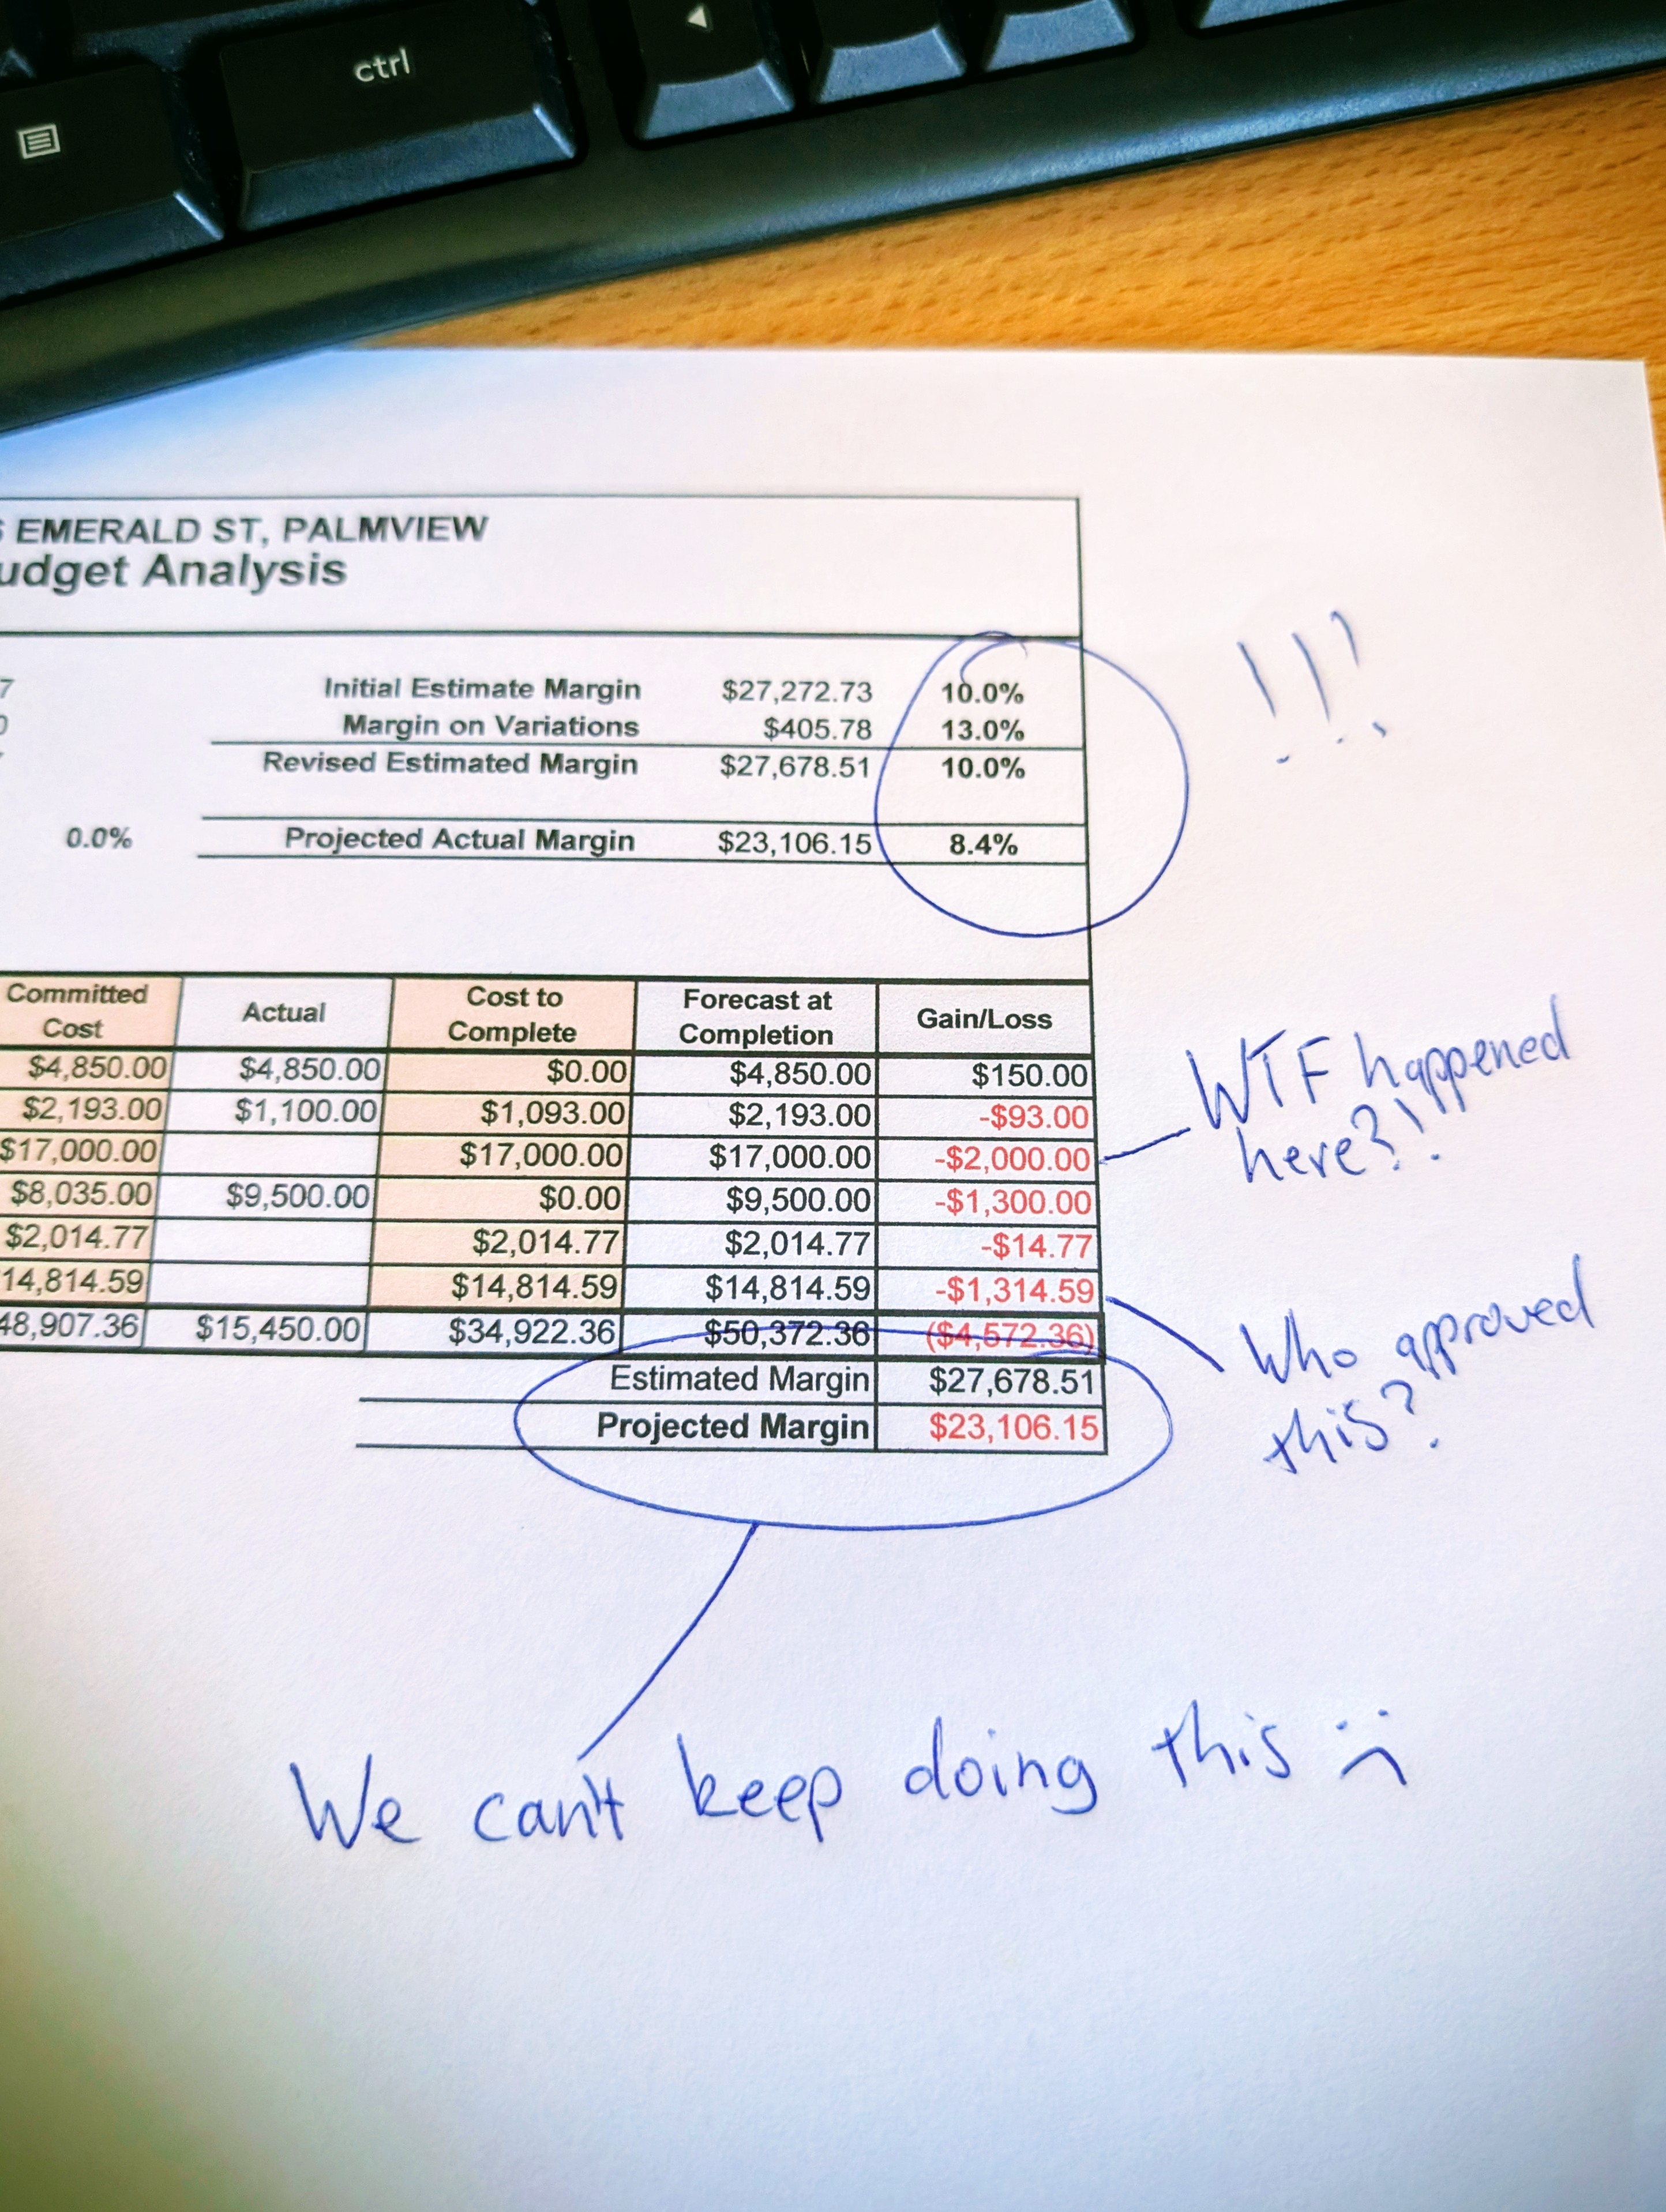 ctrl
EMERALD ST, PALMVIEW
udget Analysis
Initial Estimate Margin $27,272.73 10.0%
Margin on Variations $405.78 13.0%
Revised Estimated Margin $27,678.51 10.0%
0.0% Projected Actual Margin $23,106.15 8.4%
!!!
Committed Cost Actual Cost to Complete Forecast at Completion Gain/Loss
$4,850.00 $4,850.00 $0.00 $4,850.00 $150.00
$2,193.00 $1,100.00 $1,093.00 $2,193.00 -$93.00
$17,000.00 $17,000.00 $17,000.00 -$2,000.00
$8,035.00 $9,500.00 $0.00 $9,500.00 -$1,300.00
$2,014.77 $2,014.77 $2,014.77 -$14.77
14,814.59 $14,814.59 $14,814.59 -$1,314.59
48,907.36 $15,450.00 $34,922.36 $50,372.36 ($4,572.36)
Estimated Margin $27,678.51
Projected Margin $23,106.15
WTF happened
here?!
Who approved
this?
We can't keep doing this :(